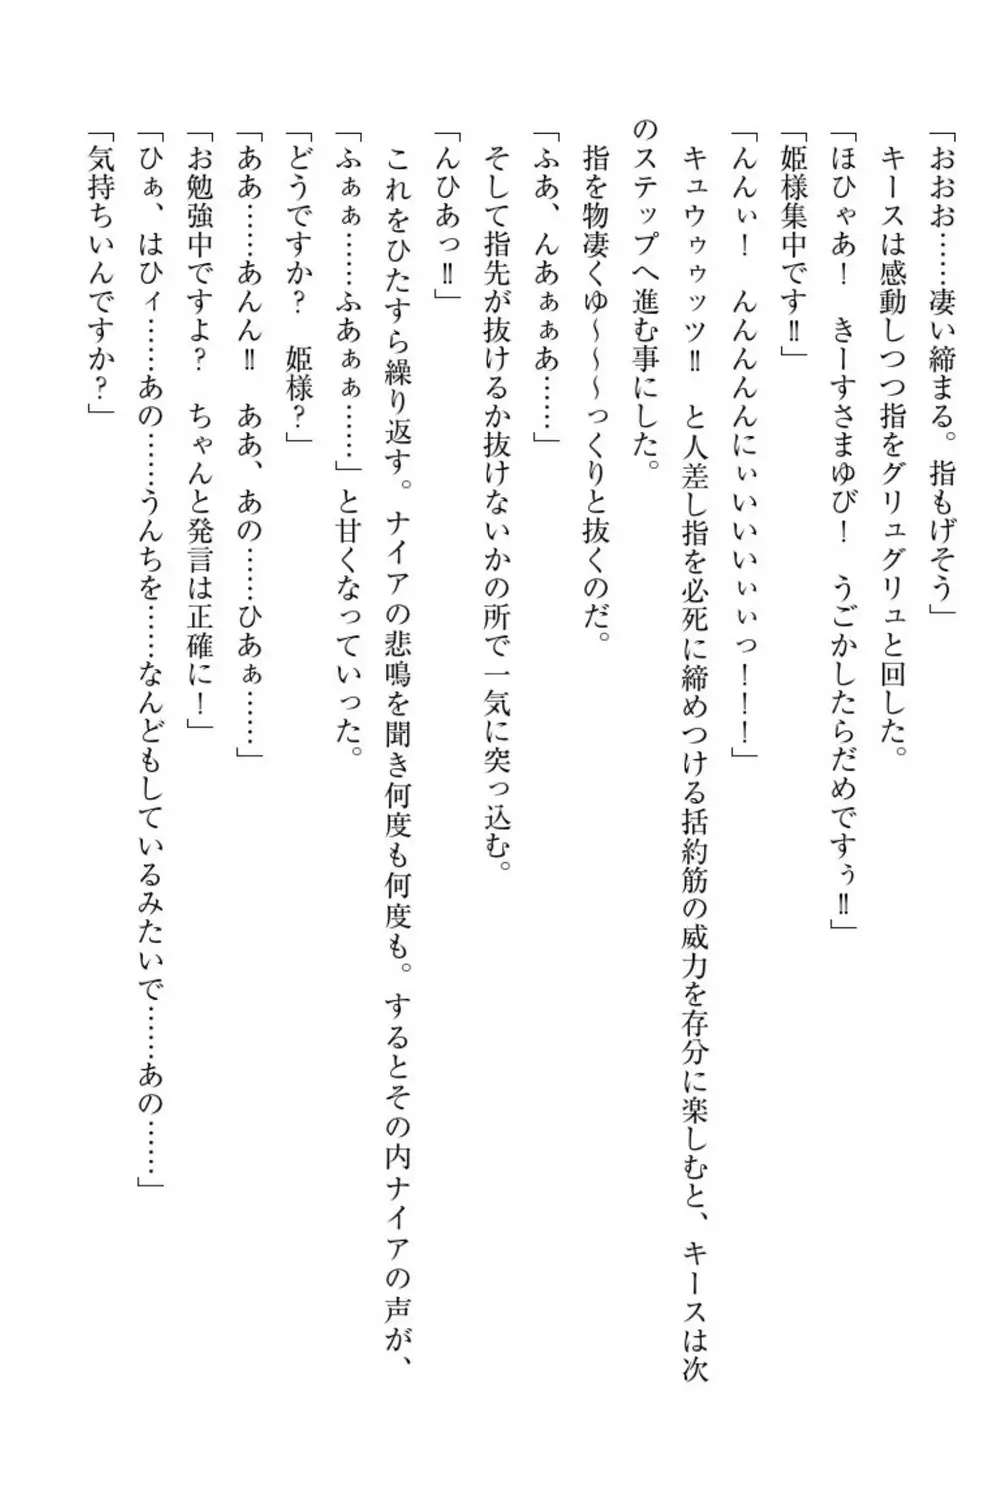 「おおお……凄い締まる。指もげそう」
　キースは感動しつつ指をグリュグリュと回した。
「ほひゃあ！　きーすさまゆび！　うごかしたらだめですぅ‼」
「姫様集中です‼」
「んんぃ！　んんんんんにぃいいいいぃぃっ！！！」
　キュウゥゥッツ‼　と人差し指を必死に締めつける括約筋の威力を存分に楽しむと、キースは次
のステップへ進む事にした。
　指を物凄くゆ～～～っくりと抜くのだ。
「ふあ、んあぁぁあ……」
　そして指先が抜けるか抜けないかの所で一気に突っ込む。
「んひあっ‼」
　これをひたすら繰り返す。ナイアの悲鳴を聞き何度も何度も。するとその内ナイアの声が、
「ふぁぁ……ふあぁぁ……」と甘くなっていった。
「どうですか？　姫様？」
「ああ……あんん‼　ああ、あの……ひあぁ……」
「お勉強中ですよ？　ちゃんと発言は正確に！」
「ひぁ、はひィ……あの……うんちを……なんどもしているみたいで……あの……」
「気持ちいんですか？」